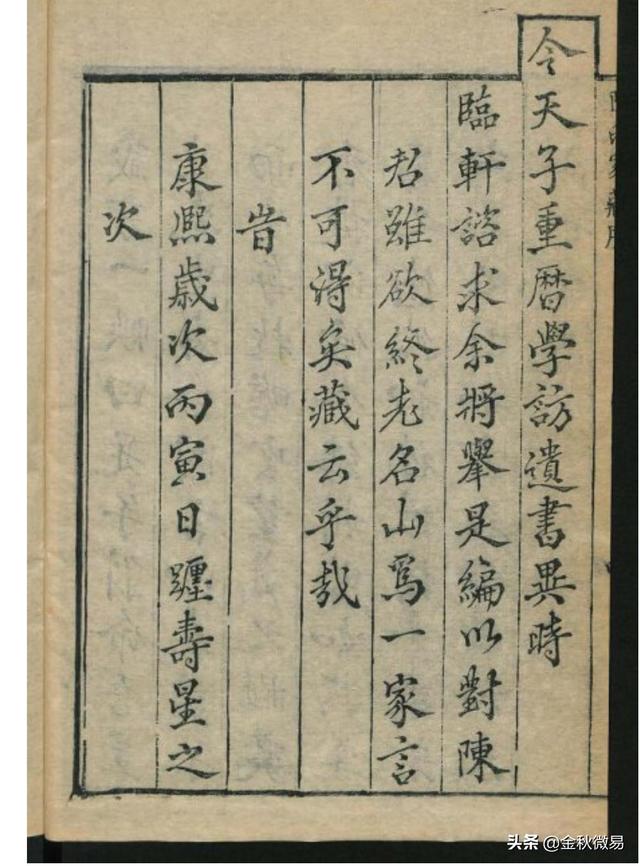 今天子重曆學訪遺書異時
臨軒諮求余將舉是編以對陳
君雖欲終老名山爲一家言
不可得矣藏云乎哉
旹
康熙歲次丙寅日躔壽星之
次
头条 @金秋微易